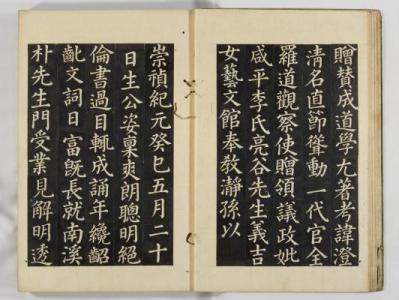 贈賛成道學尤著考諱澄
淸名直節聳動一代官全
羅道觀察使贈領議政妣
咸平李氏亮谷先生義吉
女藝文館奉敎瀞孫以
崇禎紀元癸巳五月二十
日生公姿稟爽朗聰明絕
倫書過目輒成誦年纔齠
齔文詞日富旣長就南溪
朴先生門受業見解明透